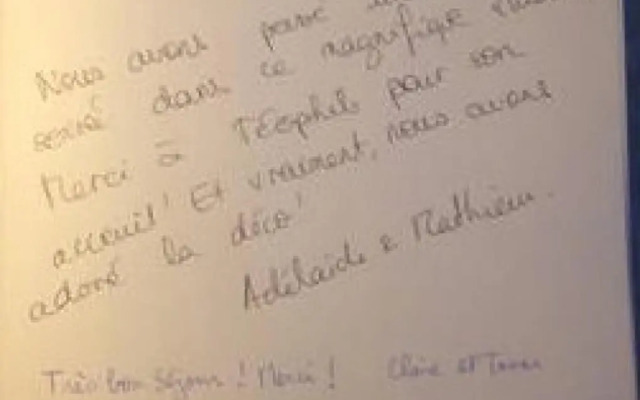 Nous avons passé
soirée dans ce magnifique
Merci à Téophile pour son
accueil! Et vraiment, nous avons
adoré la déco!
Adélaïde & Mathieu.
Très bon séjour! Merci! Claire et